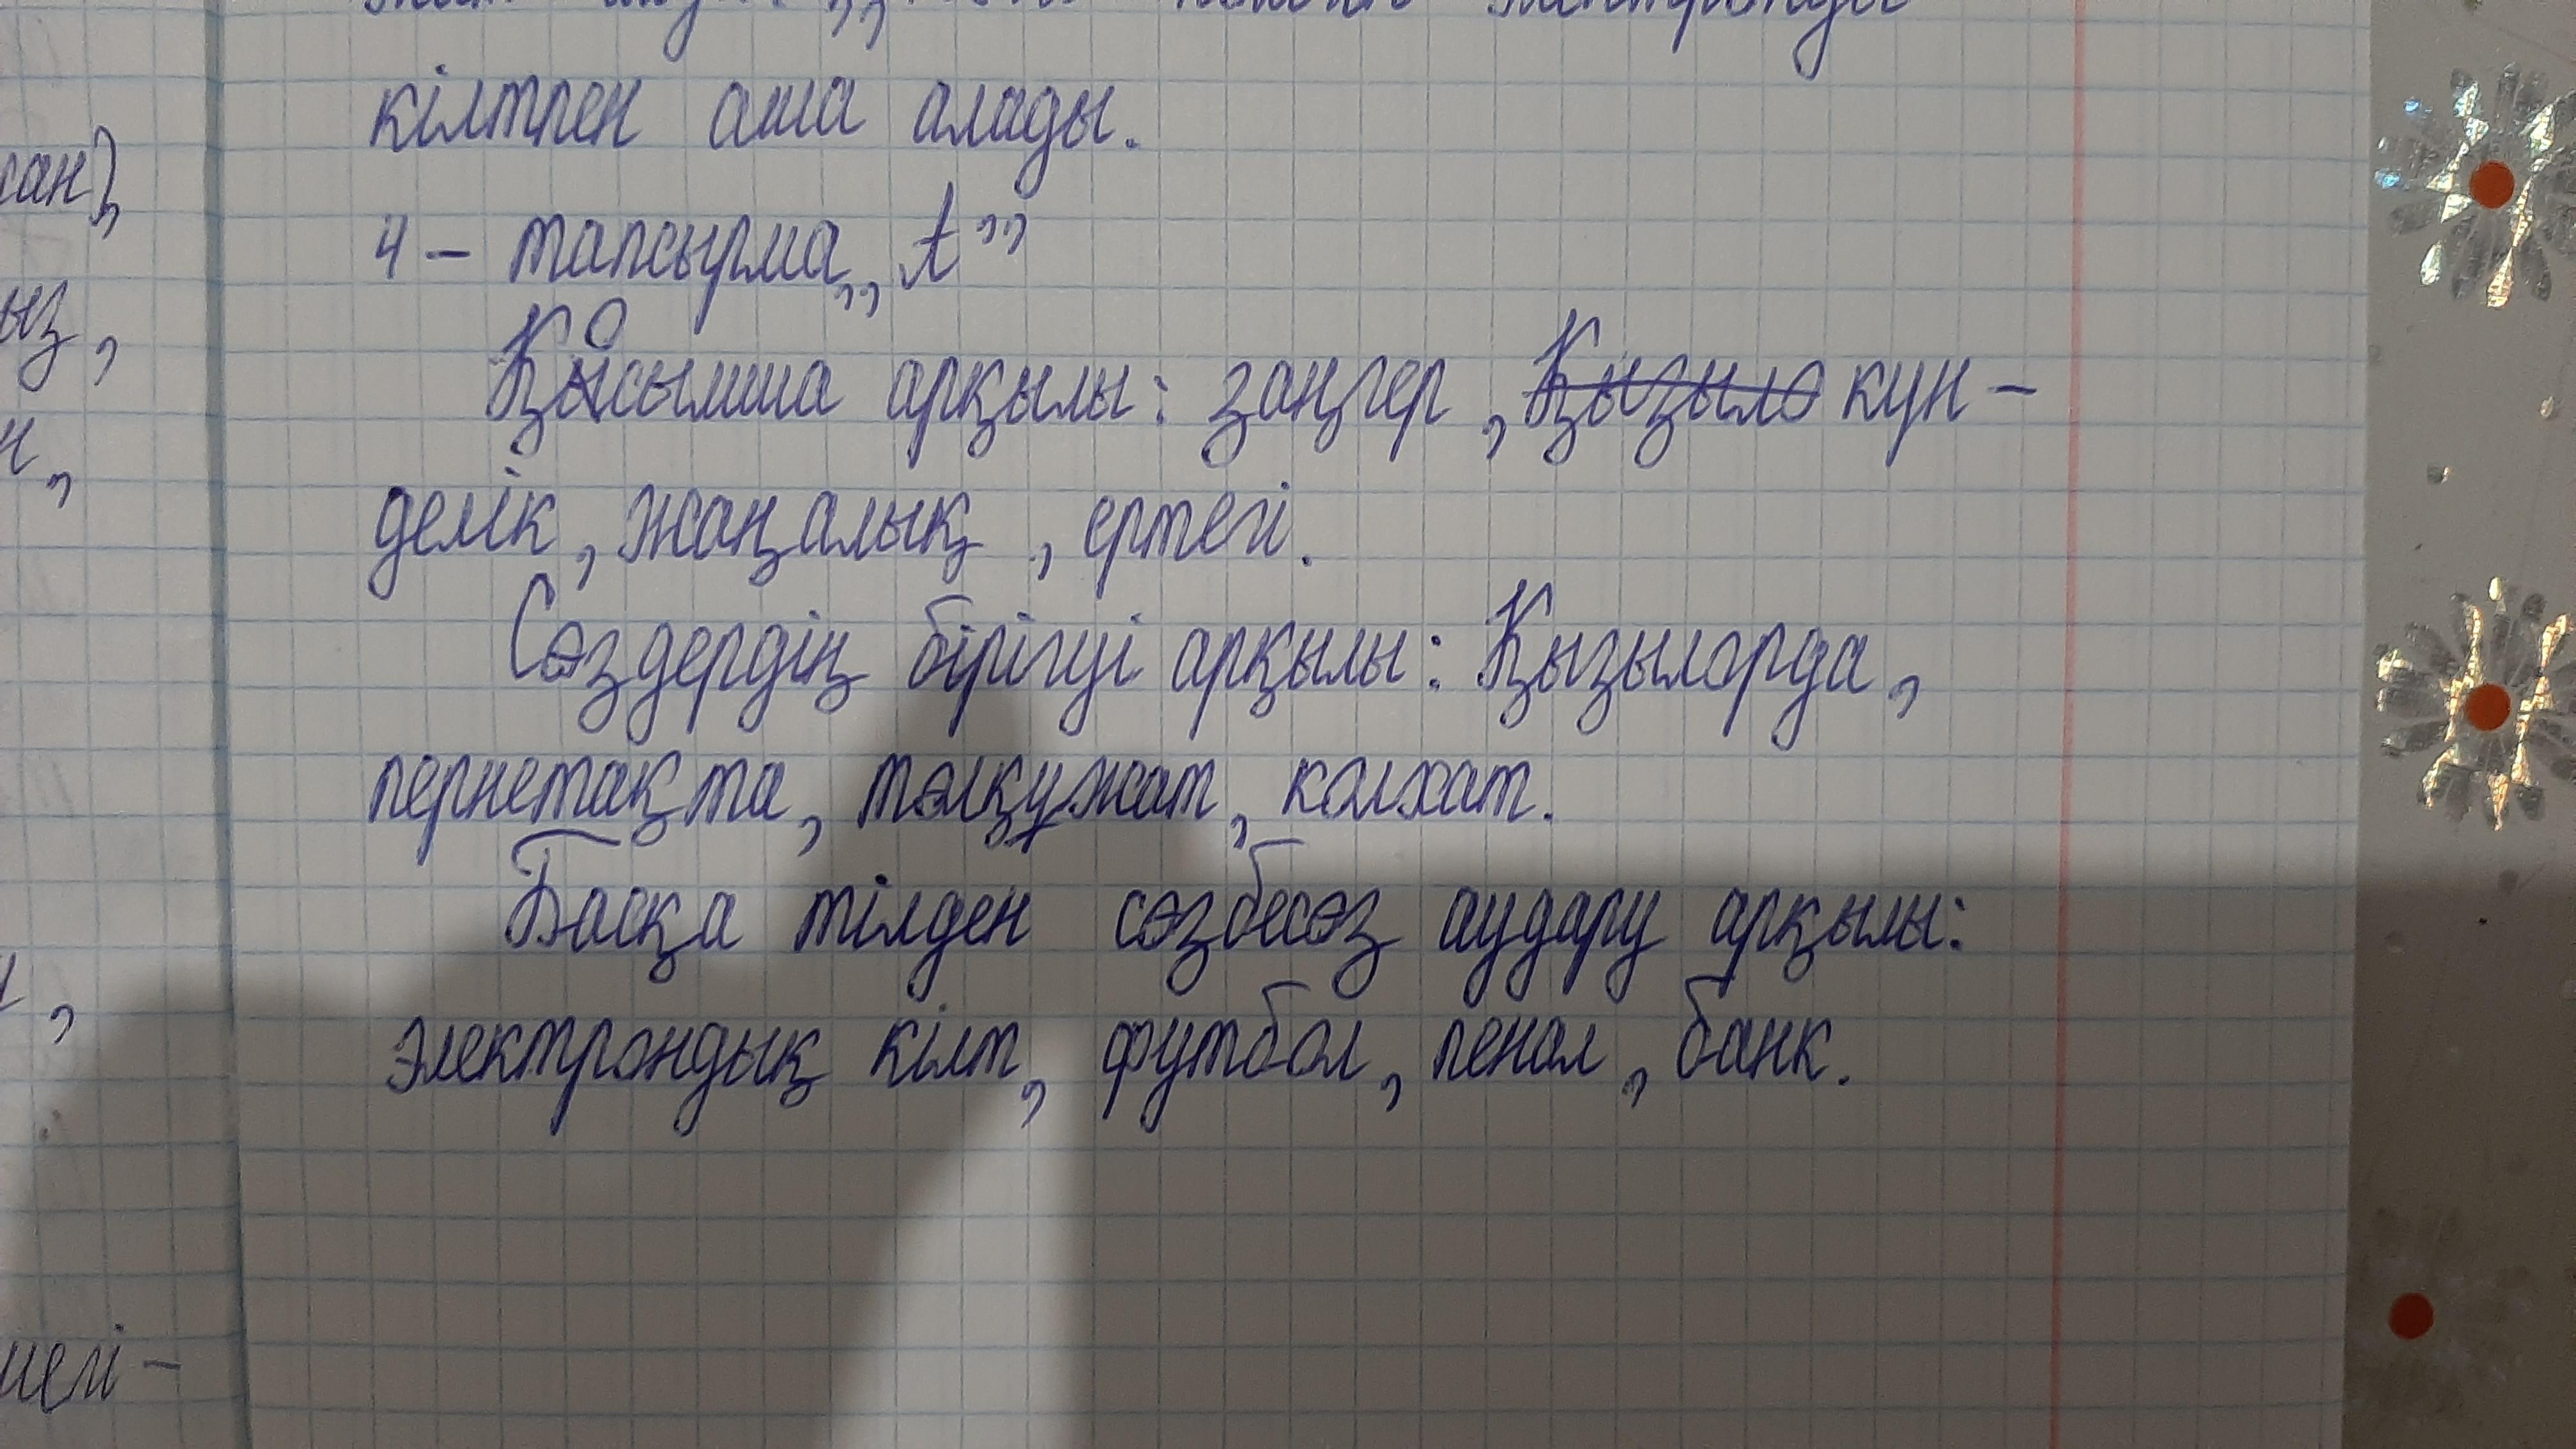 кілтпен аша алады.
4 - тапсырма „A"
Қосымша арқылы: заңгер, Қызыло күн-
делік, жаңалық, ертегі.
Сөздердің бірігуі арқылы: Қызылорда,
пернетақта, төлқұжат, қолхат.
Басқа тілден сөзбесөз аудару арқылы:
электрондық кілт, футбол, пенал, банк.